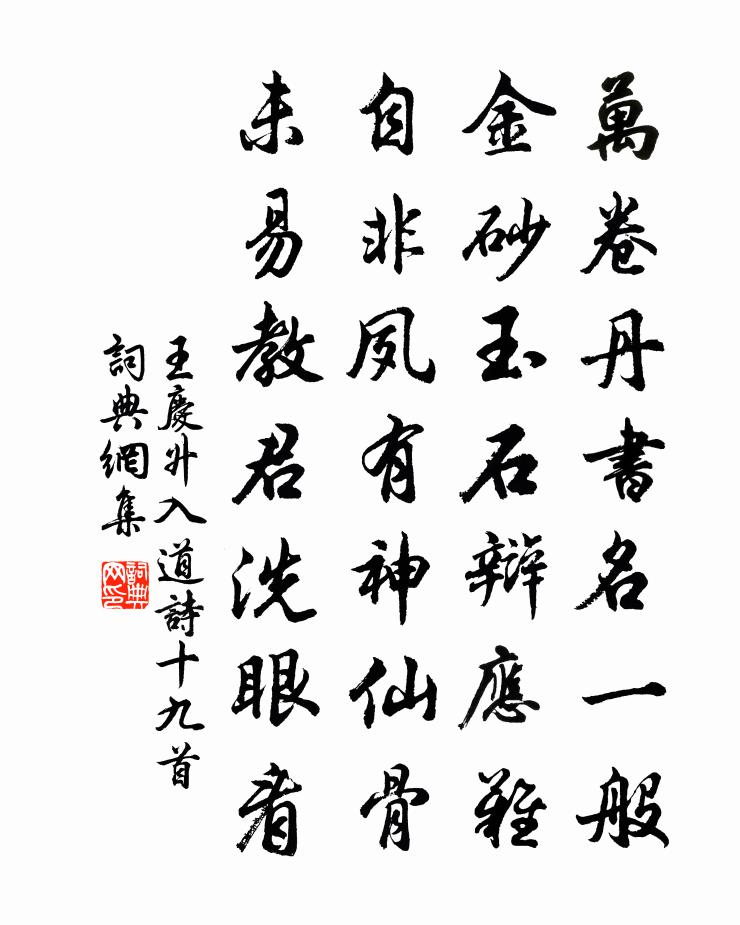 萬卷丹書名一般
金砂玉石辯應難
自非夙有神仙骨
未易教君洗眼看
王慶升入道詩十九首
詞典網集
詞典
网印